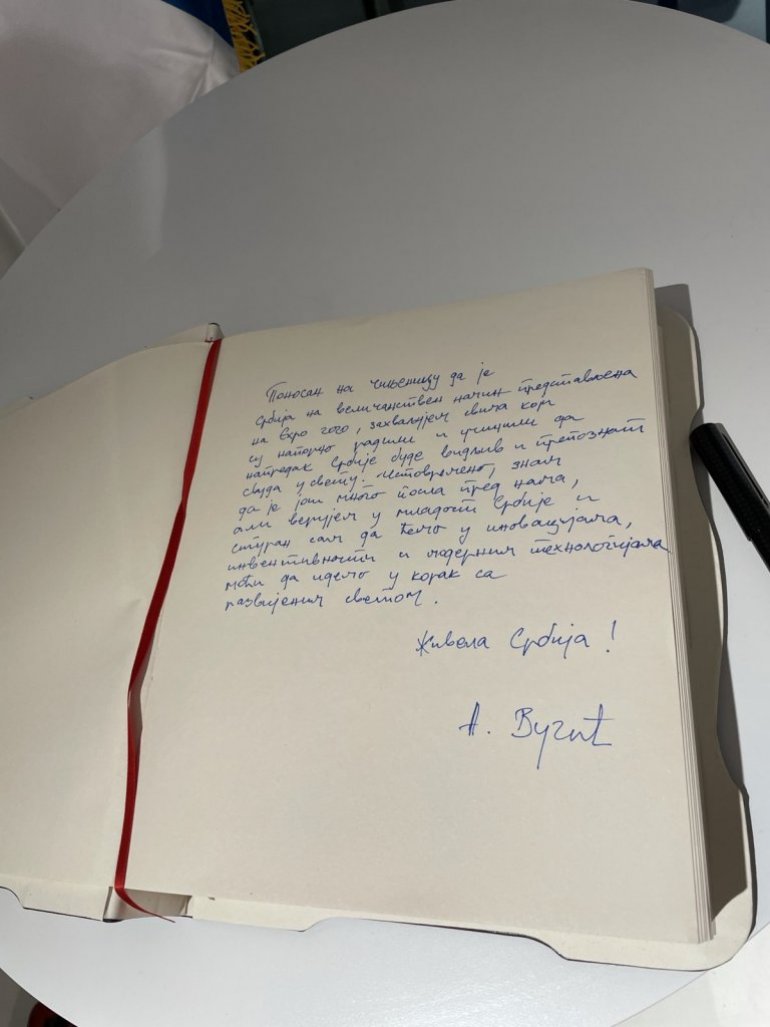 Поносан на чињеницу да је
Србија на величанствен начин представљена
на Expo 2020, захваљујем свима који
су напорно радили и учинили да
напредак Србије буде видљив и препознат
свуда у свету. Истовремено, знам
да је још много посла пред нама,
али верујем у младост Србије и
сигуран сам да ћемо у иновацијама,
инвентивности и модерним технологијама
моћи да идемо у корак са
развијеним светом.
Живела Србија!
А. Вучић